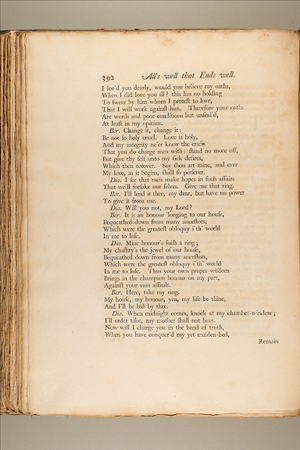 392 All's well that Ends well.
I lov'd you dearly, would you believe my oaths,
When I did love you ill? this has no holding
To swear by him whom I protest to love,
That I will work against him. Therefore your oaths
Are words and poor conditions but unseal'd,
At least in my opinion.
Ber. Change it, change it:
Be not so holy cruel. Love is holy,
And my integrity ne'er knew the crafts
That you do charge men with: stand no more off,
But give thy self unto my sick desires,
Which then recover. Say thou art mine, and ever
My love, as it begins, shall so persever.
Dia. I see that men make hopes in such affairs
That we'll forsake our selves. Give me that ring.
Ber. I'll lend it thee, my dear, but have no power
To give it from me.
Dia. Will you not, my Lord?
Ber. It is an honour 'longing to our house,
Bequeathed down from many ancestors,
Which were the greatest obloquy i'th' world
In me to lose.
Dia. Mine honour's such a ring;
My chastity's the jewel of our house,
Bequeathed down from many ancestors,
Which were the greatest obloquy i'th' world
In me to lose. Thus your own proper wisdom
Brings in the champion honour on my part,
Against your vain assault.
Ber. Here, take my ring.
My house, my honour, yea, my life be thine,
And I'll be bid by thee.
Dia. When midnight comes, knock at my chamber-window;
I'll order take, my mother shall not hear.
Now will I charge you in the band of truth,
When you have conquer'd my yet maiden-bed,
Remain